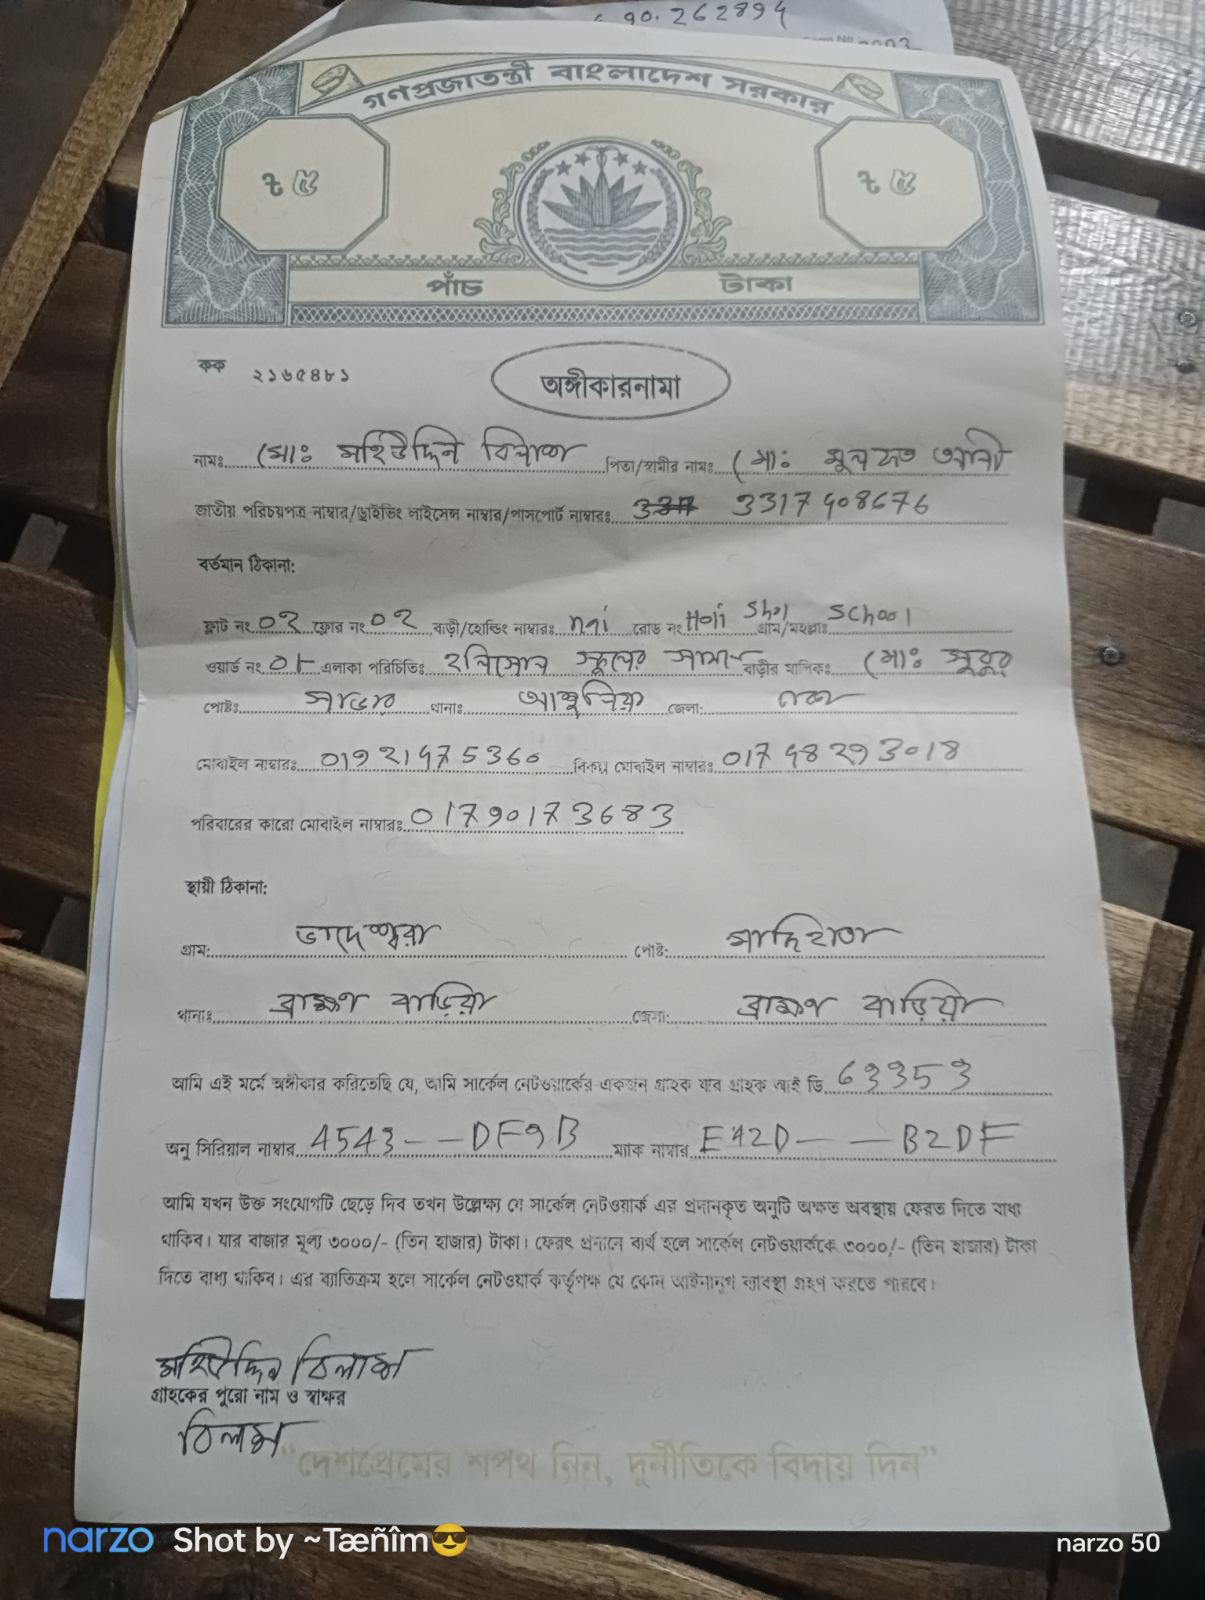 90.262894
গণপ্রজাতন্ত্রী বাংলাদেশ সরকার
৳ ৫ ৳ ৫
পাঁচ টাকা
কক ২১৬৫৪৮১
অঙ্গীকারনামা
নামঃ মোঃ মহিউদ্দিন বিল্লাল পিতা/স্বামীর নামঃ মোঃ আলী
জাতীয় পরিচয়পত্র নাম্বার/ড্রাইভিং লাইসেন্স নাম্বার/পাসপোর্ট নাম্বারঃ 3317408676
বর্তমান ঠিকানা:
ফ্লাট নং 02 ফ্লোর নং 02 বাড়ী/হোল্ডিং নাম্বারঃ nai রোড নং Holi Shol গ্রাম/মহল্লাঃ School
ওয়ার্ড নং এলাকা পরিচিতিঃ স্কুলের সামনে বাড়ীর মালিকঃ মোঃ
পোষ্টঃ সাভার থানাঃ আশুলিয়া জেলা: ঢাকা
মোবাইল নাম্বারঃ 01921475360 বিকল্প মোবাইল নাম্বারঃ 01748293018
পরিবারের কারো মোবাইল নাম্বারঃ 01790173683
স্থায়ী ঠিকানা:
গ্রাম: ভাদেশ্বরা পোষ্ট: মাছিহাতা
থানাঃ ব্রাহ্মণ বাড়িয়া জেলা: ব্রাহ্মণ বাড়িয়া
আমি এই মর্মে অঙ্গীকার করিতেছি যে, আমি সার্কেল নেটওয়ার্কের একজন গ্রাহক যার গ্রাহক আই ডি 63353
অনু সিরিয়াল নাম্বার 4543--DF9B ম্যাক নাম্বার E42D--B2DF
আমি যখন উক্ত সংযোগটি ছেড়ে দিব তখন উল্লেক্ষ্য যে সার্কেল নেটওয়ার্ক এর প্রদানকৃত অনুটি অক্ষত অবস্থায় ফেরত দিতে বাধ্য
থাকিব। যার বাজার মূল্য ৩০০০/- (তিন হাজার) টাকা। ফেরৎ প্রদানে ব্যর্থ হলে সার্কেল নেটওয়ার্ককে ৩০০০/- (তিন হাজার) টাকা
দিতে বাধ্য থাকিব। এর ব্যতিক্রম হলে সার্কেল নেটওয়ার্ক কর্তৃপক্ষ যে কোন আইনানুগ ব্যবস্থা গ্রহণ করতে পারবে।
মহিউদ্দিন বিলাল
গ্রাহকের পুরো নাম ও স্বাক্ষর
বিলাল
“দেশপ্রেমের শপথ নিন, দুর্নীতিকে বিদায় দিন”
narzo Shot by ~Tæñîm😎 narzo 50